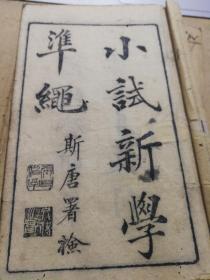 小試新學
準繩
斯唐署檢